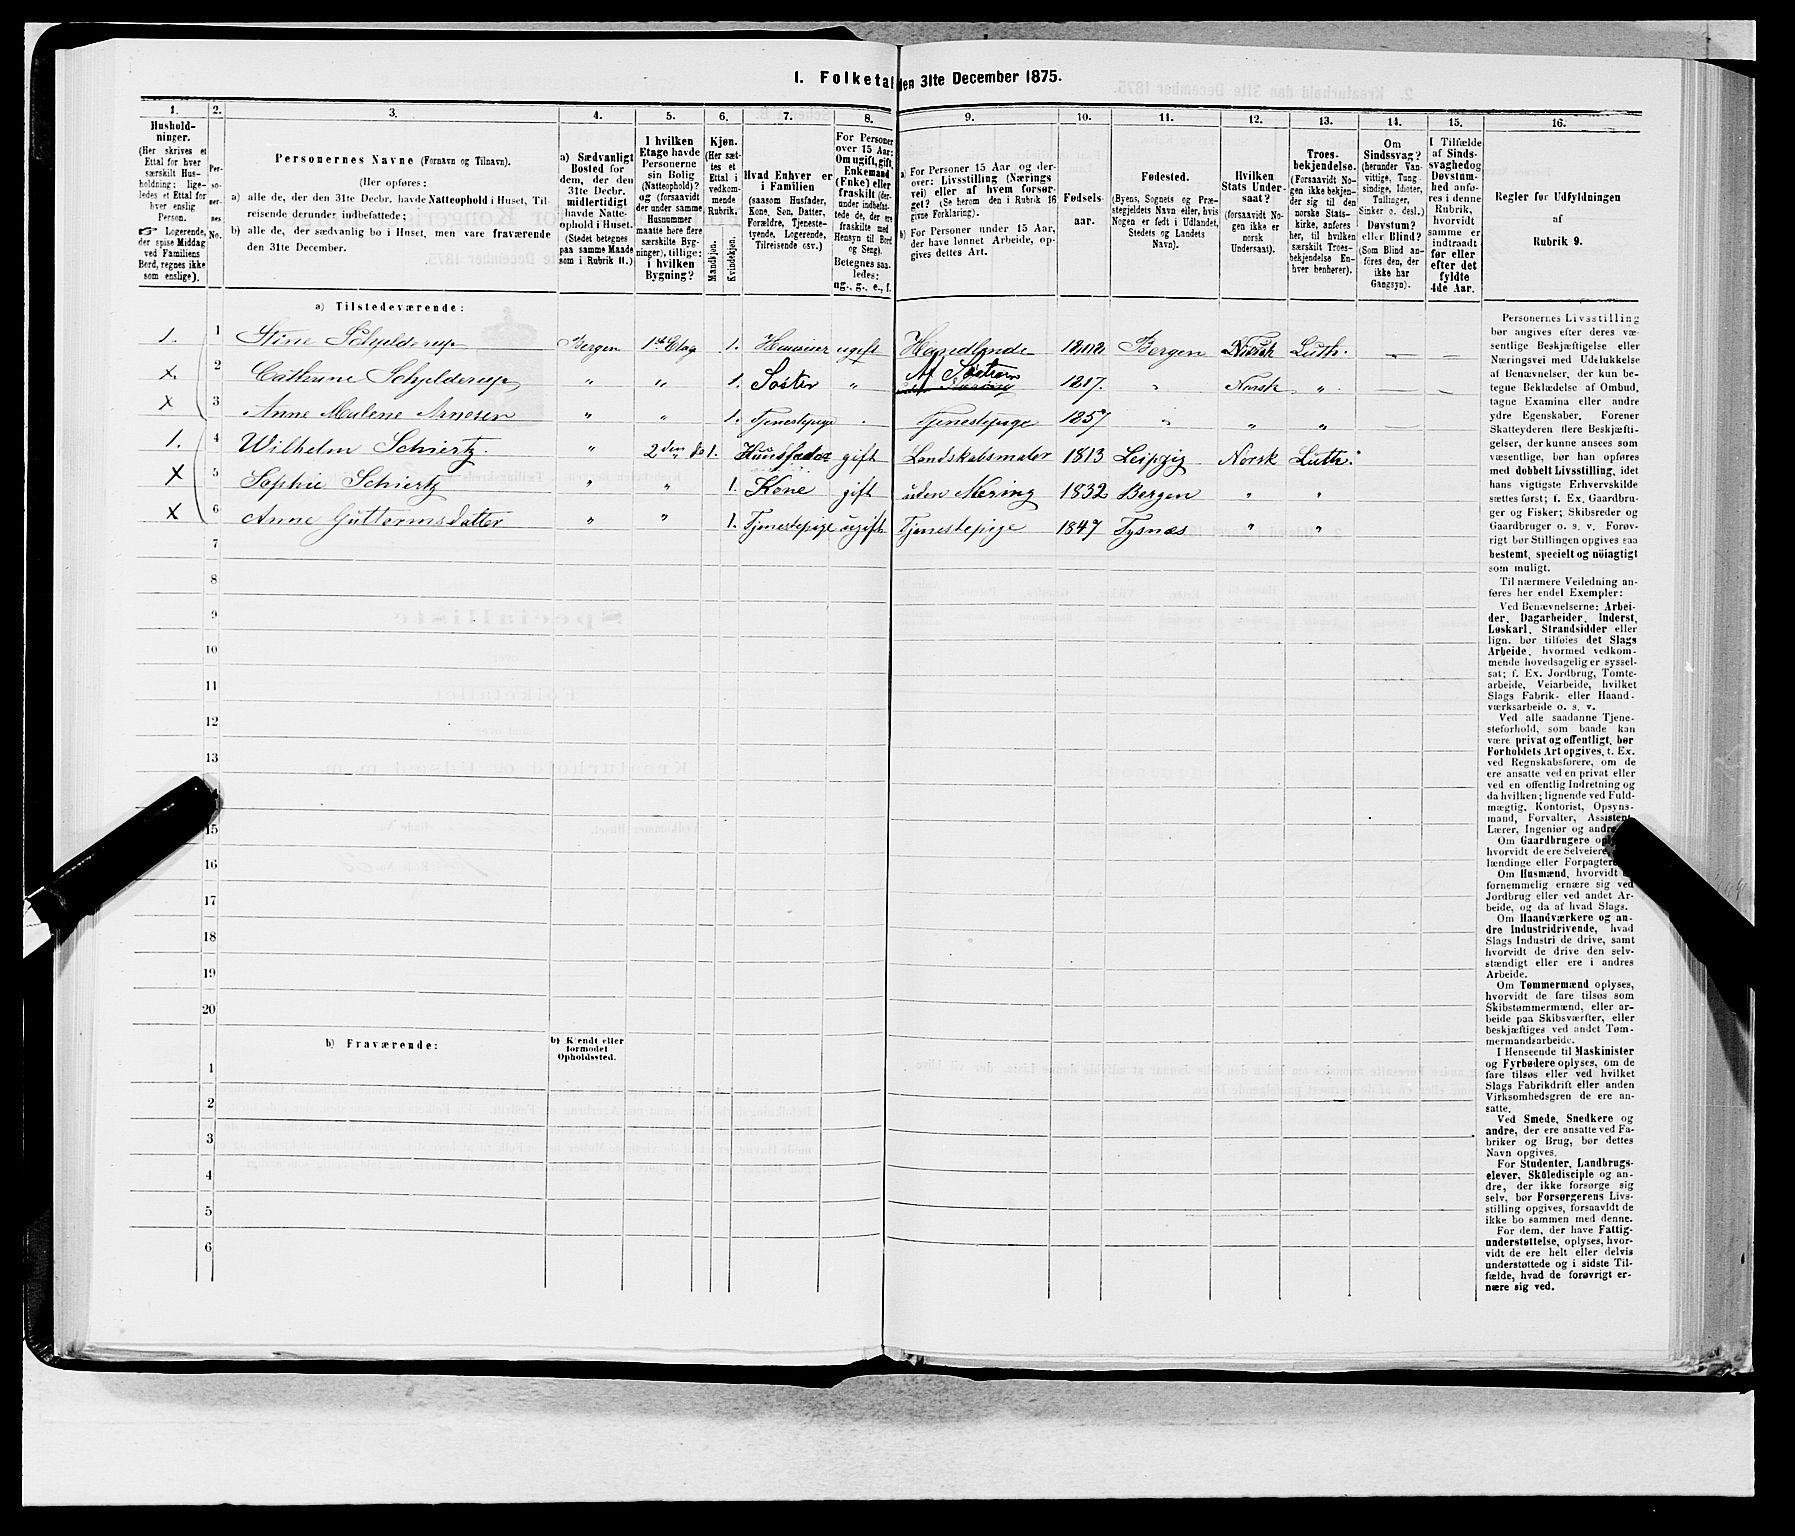 1. Folketal den 31te December 1875.
1. 2. 3. 4. 5. 6. 7. 8. 9. 10. 11. 12. 13. 14. 15. 16.
Hushold-
ninger.
(Her skrives et
Ettal for hver
særskilt Hus-
holdning; lige-
ledes et Ettal for
hver enslig
Person.
☞ Logerende,
der spise Middag
ved Familiens
Bord, regnes ikke
som enslige).
Per-
so-
ner-
nes
No.
Personernes Navne (Fornavn og Tilnavn).
(Her opføres:
a) alle de, der den 31te Decbr. havde Natteophold i Huset, Til-
reisende derunder indbefattede;
b) alle de, der sædvanlig bo i Huset, men vare fraværende
den 31te December.
a) Sædvanligt
Bosted for
dem, der den
31te Decbr.
midlertidigt
havde Natte-
ophold i Huset.
(Stedet betegnes
paa samme Maade
som i Rubrik 11.)
I hvilken
Etage havde
Personerne
sin Bolig
(Natteophold)?
og (forsaavidt
der under samme
Husnummer
maatte høre flere
særskilte Byg-
ninger), tillige:
i hvilken
Bygning?
Kjøn.
(Her sæt-
tes et
Ettal i
vedkom-
mende
Rubrik.
Mandkjøn.
Kvindekjøn.
Hvad Enhver er
i Familien
(saasom Husfader,
Kone, Søn, Datter,
Forældre, Tjeneste-
tyende, Logerende,
Tilreisende osv.)
For Personer
over 15 Aar:
Om ugift, gift,
Enkemand
(Enke) eller
fraskilt (der-
under indbefat-
tede de, der ere
fraskilte med
Hensyn til Bord
og Seng).
Betegnes saa-
ledes:
ug., g., e., f.
a) For Personer 15 Aar og der-
over: Livsstilling (Nærings
vei) eller af hvem forsør-
get? (Se herom den i Rubrik 16
givne Forklaring).
b) For Personer under 15 Aar,
der have lønnet Arbeide, op-
gives dettes Art.
Fødsels-
aar.
Fødested.
(Byens, Sognets og Præ-
stegjeldets Navn eller, hvis
Nogen er født i Udlandet,
Stedets og Landets
Navn).
Hvilken
Stats Under-
saat?
(forsaavidt No-
gen ikke er
norsk
Undersaat).
Troes-
bekjendelse.
(Forsaavidt No-
gen ikke bekjen-
der sig til den
norske Stats-
kirke, anføres
her, til hvilken
særskilt Troes-
bekjendelse En-
hver henhører).
Om
Sindssvag?
(herunder Van-
vittige, Tung-
sindige, Idioter,
Tullinger,
Sinker o. desl.)
Døvstum?
eller Blind?
(Som Blind an-
føres den, der
ikke har
Gangsyn).
I Tilfælde
af Sinds-
svaghed og
Døvstum-
hed anfø-
res i denne
Rubrik,
hvorvidt
samme er
indtraadt
før eller
efter det
fyldte
4de Aar.
Regler for Udfyldningen
af
Rubrik 9.
a) Tilstedeværende:
1. 1 Stine Schjelderup Bergen 1st Etag 1. ugift Handlende Bergen Norsk Luth. — — —
x. 2 Cathrine Schjelderup " " 1. Søster " Af Søstren 1817. " Norsk " — —
x 3 Anne Malene Arnesen " " 1. Tjenestepige . Tjenestepige 1857 " " "
1. 4 Wilhelm Schiertz. " 2den do 1. Huusfader gift Landskabsmaler 1813 Leipzig Norsk Luth:
x 5 Sophie Schiertz " " 1. Kone gift uden Næring 1832 Bergen " "
x 6 Anne Guttormsdatter " " 1. Tjenestepige ugift Tjenestepige 1847 Tysnæs " "
7
8
9
10
11
12
13
15
16
17
18
19
20
b) Fraværende:
b) Kjendt eller
formodet
Opholdssted.
1
2
3
4
5
6
Personernes Livsstilling
bør angives efter deres væ-
sentlige Beskjæftigelse eller
Næringsvei med Udelukkelse
af Benævnelser, der kun be-
tegne Beklædelse af Ombud,
tagne Examina eller andre
ydre Egenskaber. Forener
Skatteyderen flere Beskjæfti-
gelser, der kunne ansees som
væsentlige, bør han opføres
med dobbelt Livsstilling, idet
hans vigtigste Erhvervskilde
sættes først; f. Ex. Gaardbru-
ger og Fisker; Skibsreder og
Gaardbruger o. s. v. Forøv-
rigt bør Stillingen opgives saa
bestemt, specielt og nöiagtigt
som muligt.
Til nærmere Veiledning an-
føres her endel Exempler:
Ved Benævnelserne: Arbei-
der, Dagarbeider, Inderst,
Løskarl, Strandsidder eller
lign. bør tilføies det Slags
Arbeide, hvormed vedkom-
mende hovedsagelig er syssel-
sat; f. Ex. Jordbrug, Tomte-
arbeide, Veiarbeide, hvilket
Slags Fabrik- eller Haand-
værksarbeide o. s. v.
Ved alle saadanne Tjene-
steforhold, som baade kan
være privat og offentligt, bør
Forholdets Art opgives, t. Ex.
ved Regnskabsførere, om de
ere ansatte ved en privat eller
ved en offentlig Indretning og
da hvilken; lignende ved Fuld-
mægtig, Kontorist, Opsyns-
mand, Forvalter, Assistent,
Lærer, Ingeniør og andre
Om Gaardbrugere
hvorvidt de ere Selveiere,
lændinge eller Forpagtere
Om Husmænd, hvorvidt
fornemmelig ernære sig ved
Jordbrug eller ved andet Ar-
beide, og da af hvad Slags.
Om Haandværkere og an-
dre Industridrivende, hvad
Slags Industri de drive, samt
hvorvidt de drive den selv-
stændigt eller ere i andres
Arbeide.
Om Tømmermænd oplyses,
hvorvidt de fare tilsøs som
Skibstømmermænd, eller ar-
beide paa Skibsværfter, eller
beskjæftiges ved andet Tøm-
mermandsarbeide.
I Henseende til Maskinister
og Fyrbødere oplyses, om de
fare tilsøs eller ved hvilket
Slags Fabrikdrift eller anden
Virksomhedsgren de ere an-
satte.
Ved Smede, Snedkere og
andre, der ere ansatte ved Fa-
briker og Brug, bør dettes
Navn opgives.
For Studenter, Landbrugs-
elever, Skoledisciple og an-
dre, der ikke forsørge sig
selv, bør Forsørgerens Livs-
stilling opgives, forsaavidt de
ikke bo sammen med denne.
For dem, der have Fattig-
understøttelse, oplyses, hvor-
vidt de ere helt eller delvis
understøttede og i sidste Til-
fælde, hvad de forøvrigt er-
nære sig ved.